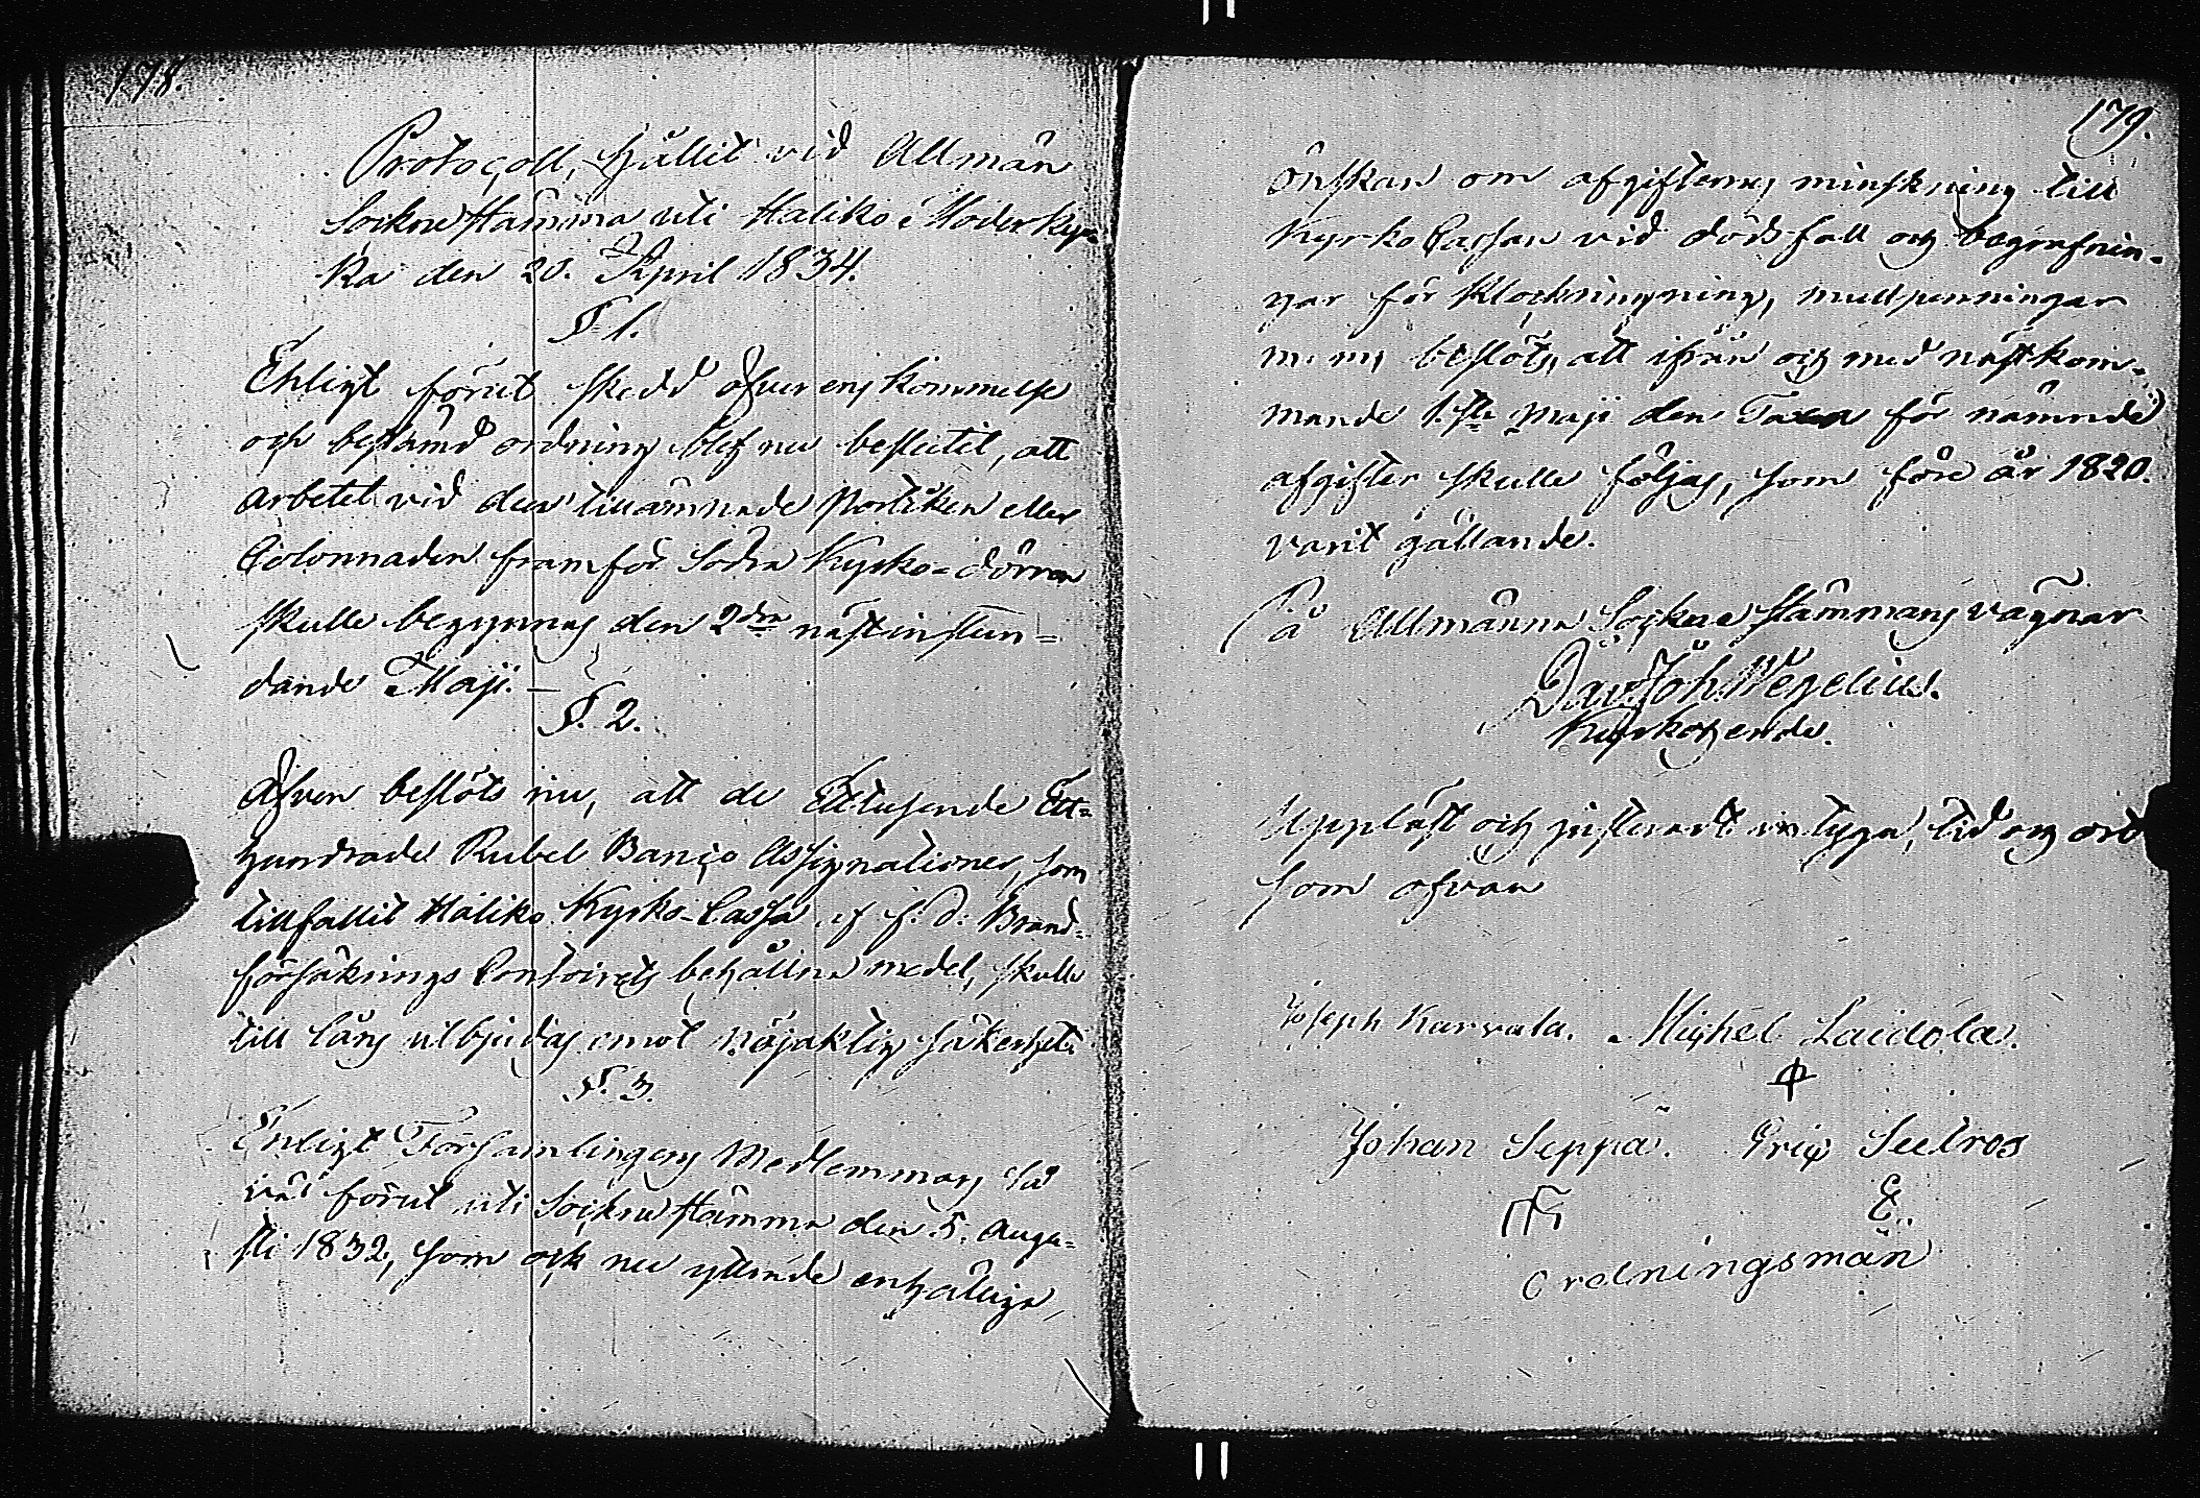 178.
Protocoll, hållit vid Allmän
Sockne Stämma uti Haliko Moderkyr=
ka den 20. April 1834.
§ 1.
Enligt förut skedd öfverenskommelse
och bestämd ordning blef nu beslutit, att
arbetet vid den tillämnade Portiken eller
Colonnaden framför Södra Kyrko=dörren
skulle begynnas den 2dra nästinstun=
dande Maji. —
§. 2.
Äfven beslöts nu, att de Ettusende Ett=
hundrade Rubel Banco Assignationer, som
tillfallit Haliko Kyrko-Cassa af f. d. Brand=
försäkrings Contoirets behållna medel, skulle
till låns utbjudas emot nöjaktig säkerhet.
§. 3.
Enligt Församlingens Medlemmars så
väl förut uti Sockne Stämma den 5. Augu=
sti 1832, som ock nu yttrade enhälliga
179.
Önskan om afgifternas minskning till
Kyrko Cassan vid dödsfall och begrafnin=
gar för Klockringning, mullpenningar
m. m. beslöts, att ifrån och med nästkom=
mande 1.sta Maji den Taxa för nämnde
afgifter skulle följas, som före år 1820.
varit gällande.
På Allmänna Sockne Stämmans vägnar
Dav. Joh. Wegelius.
Kyrkoherde.
Uppläst och justeradt intyga, tid och ort
som ofvan
Joseph Karvala. Michel Laidola.
Johan Seppä. Eric Seetros
E.
Ordningsmän